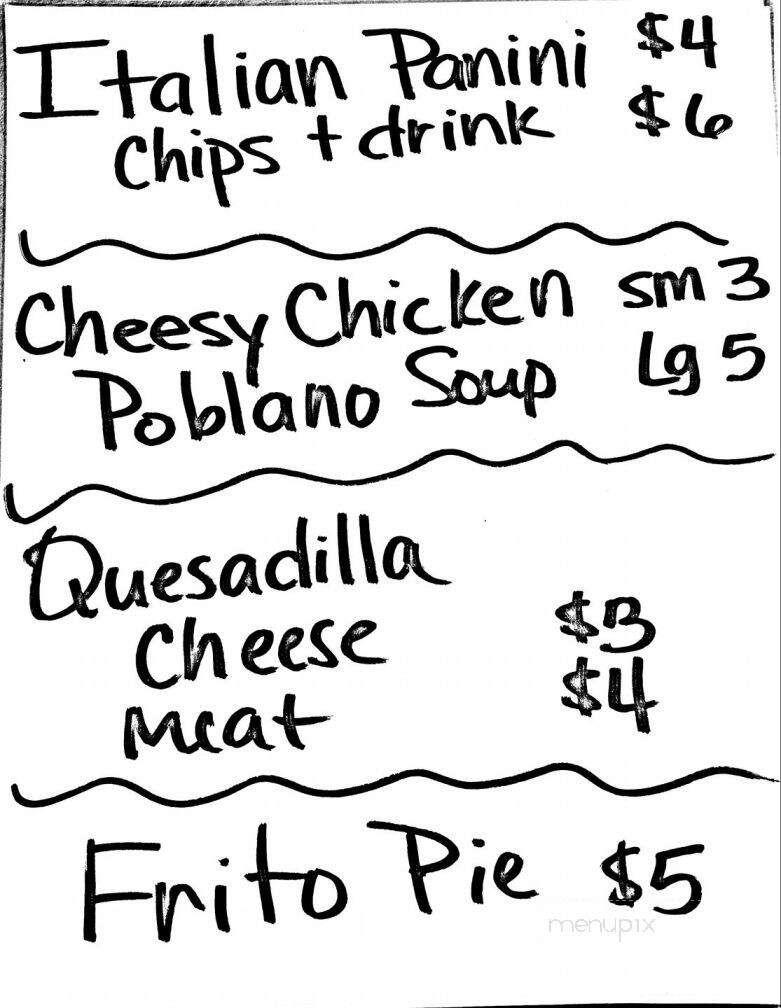 Italian Panini $4
chips + drink $6
Cheesy Chicken sm 3
Poblano Soup Lg 5
Quesadilla
Cheese $3
Meat $4
Frito Pie $5
menupix